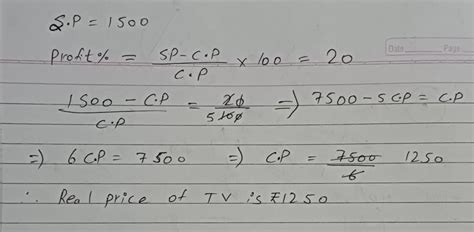 S.P = 1500
Date Page
Profit% = SP-C.P / C.P × 100 = 20
1500 - C.P / C.P = 20 / 5 100 => 7500 - 5 CP = C.P
=) 6 C.P = 7500 =) C.P = 7500 / 6 1250
∴ Real price of TV is ₹1250